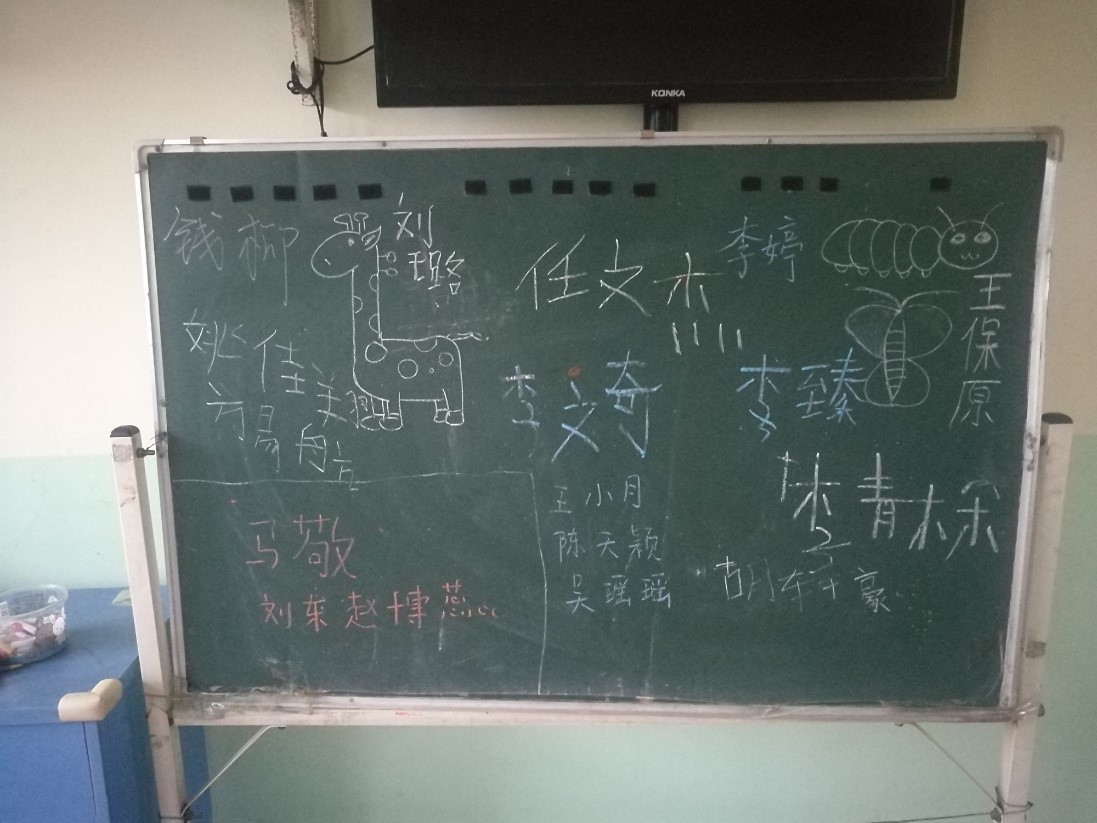 KONKA
钱柳
刘
璐
任文杰
李婷
王
保
原
姚佳美
方易舟
李文奇
李臻
马敬
刘茱赵博蕊
王小月
陈天颖
吴瑶瑶
青
豪